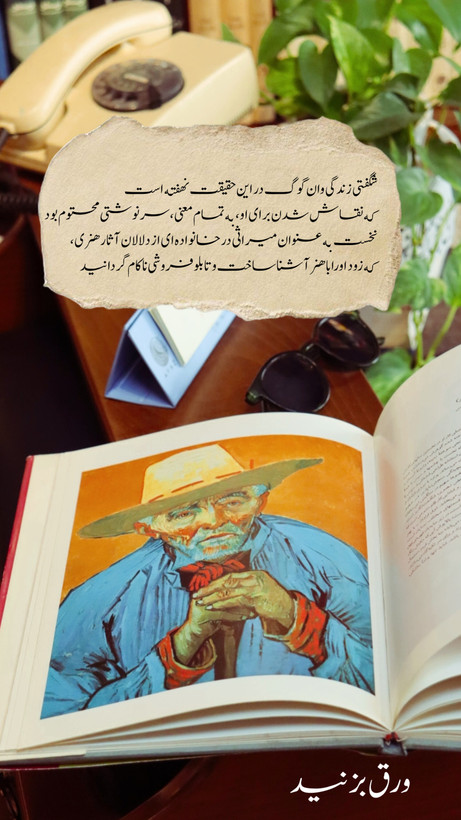 شگفتی زندگی وان گوگ در این حقیقت نهفته است
که نقاش شدن برای او، به تمام معنی، سرنوشتی محتوم بود
نخست به عنوان میراثی در خانواده‌ای از دلالان آثار هنری،
که زود او را با هنر آشنا ساخت و تابلو فروشی ناکام گردانید
ورق بزنید